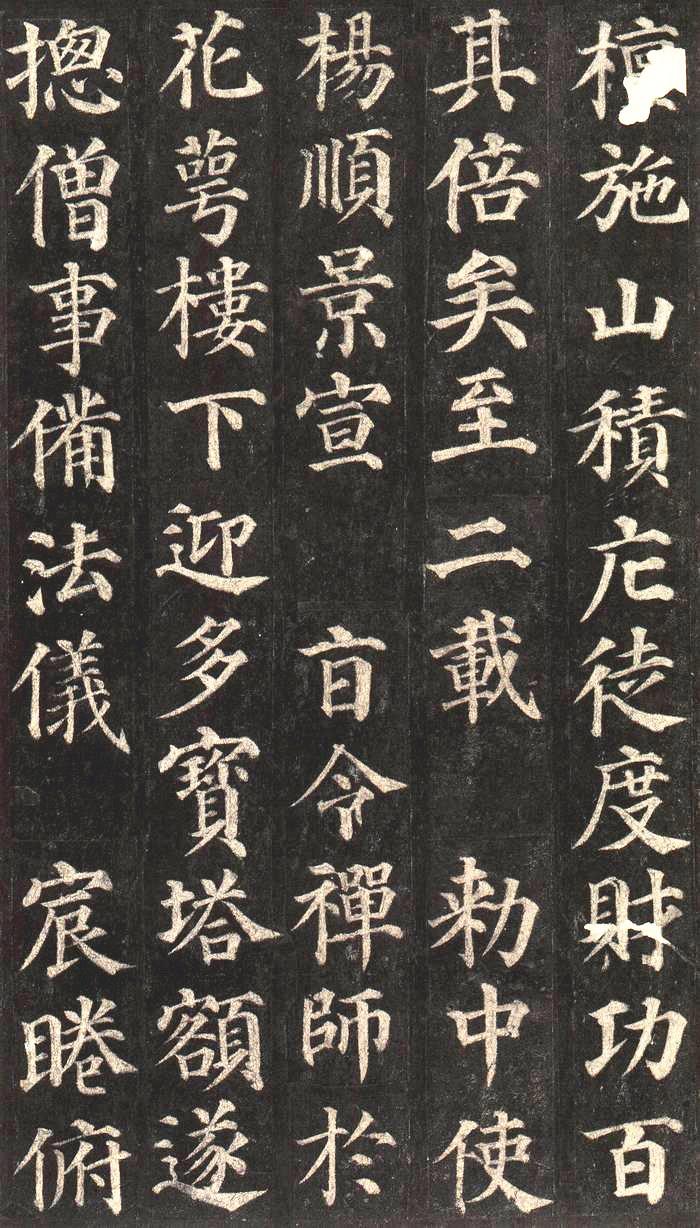 檀施山積庀徒度財功百
其倍矣至二載　勑中使
楊順景宣　㫖令禪師於
花萼樓下迎多寶塔額遂
揔僧事備法儀　宸睠俯